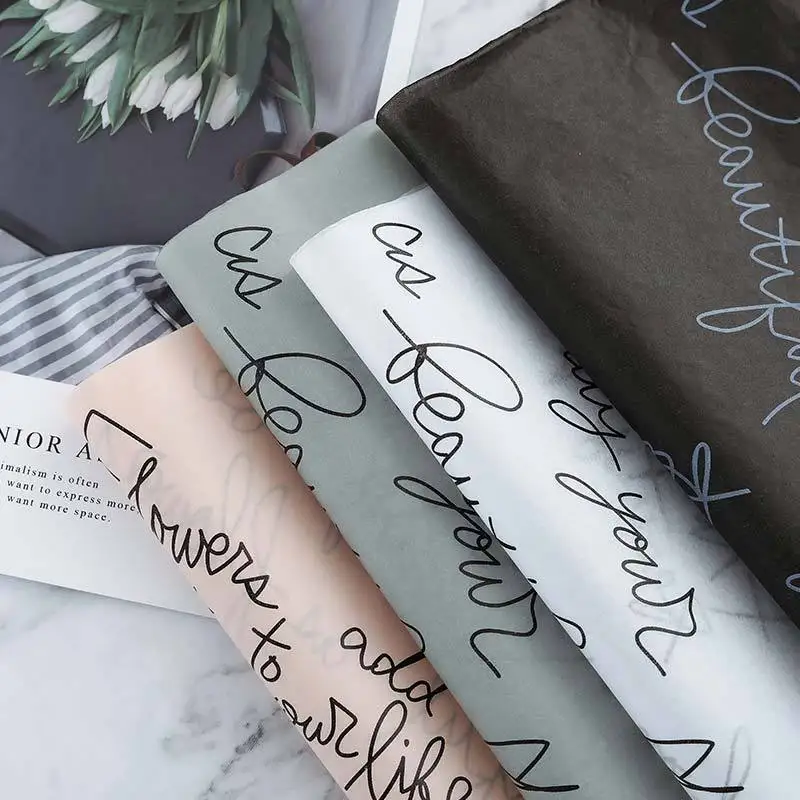 NIOR A
imalism is often
want to express more
want more space.
Flowers
to
your life
add
as
beautiful
your
as
beautiful
your
beautiful